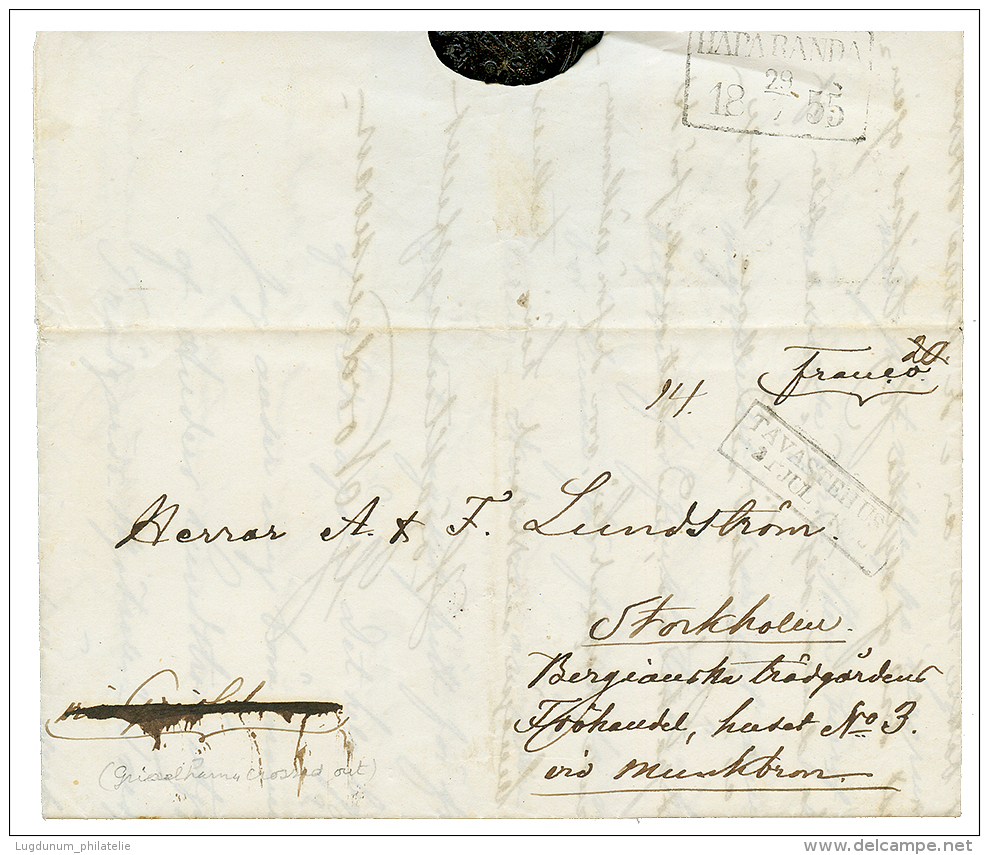 HAPARANDA
18 29/7 55
20.
Franco.
14.
TAVASTEHUS
21 JUL.
Herrar A. & F. Lundström.
Stockholm.
Bergianska trädgårdens
Fröhandel, huset No 3.
vid Munkbron.
(Grisselhamn crossed out)
Lugdunum_philatelie
www.delcampe.net